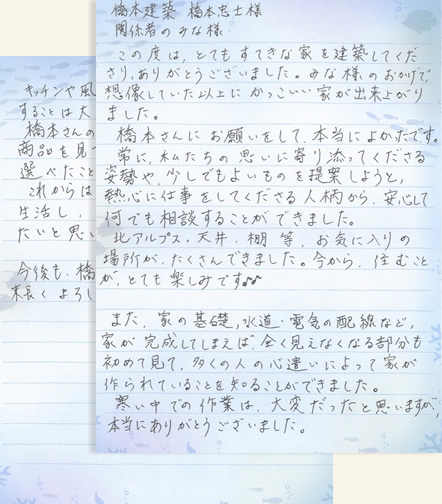 橋本建築 橋本忠士様
関係者のみな様
この度は、とてもすてきな家を建築してくだ
さり、ありがとうございました。みな様のおかげで
想像していた以上にかっこいい家が出来上がり
ました。
橋本さんにお願いをして、本当によかったです。
常に、私たちの思いに寄り添ってくださる
姿勢や、少しでもよいものを提案しようと、
熱心に仕事をしてくださる人柄から、安心して
何でも相談することができました。
北アルプス・天井・棚 等、お気に入りの
場所が、たくさんできました。今から、住むこと
が、とても楽しみです♪♪
また、家の基礎、水道・電気の配線など、
家が完成してしまえば、全く見えなくなる部分も
初めて見て、多くの人の心遣いによって家が
作られていることを知ることができました。
寒い中での作業は、大変だったと思いますが、
本当にありがとうございました。
キッチンや風
することは大
橋本さんの
商品を見
選べたこと
これからは
生活し、
たいと思い
今後も、橋
末長くよろし